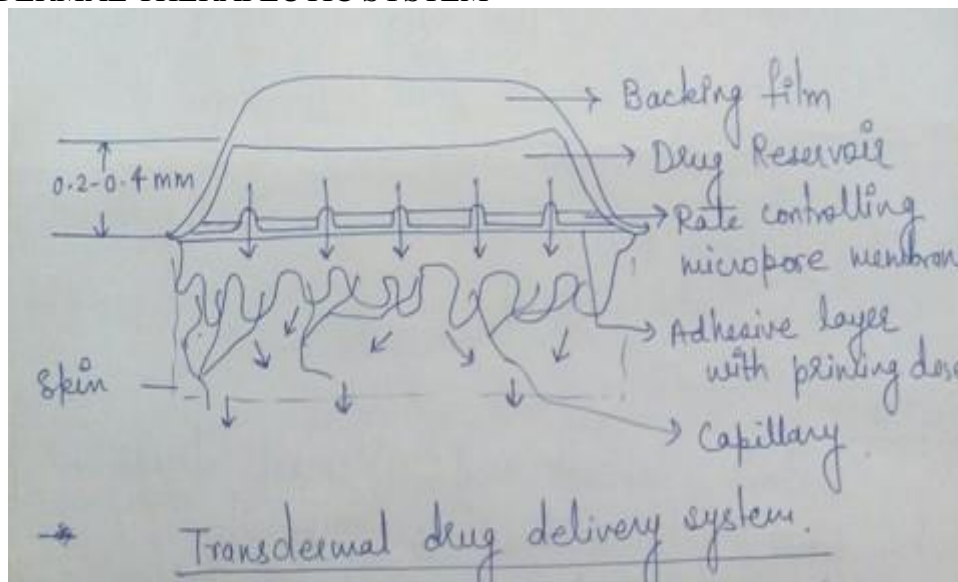 Backing film
Drug Reservoir
0.2-0.4 mm
Rate controlling
micropore membran
Adhesive layer
with printing dose
Skin
Capillary
Transdermal drug delivery system.